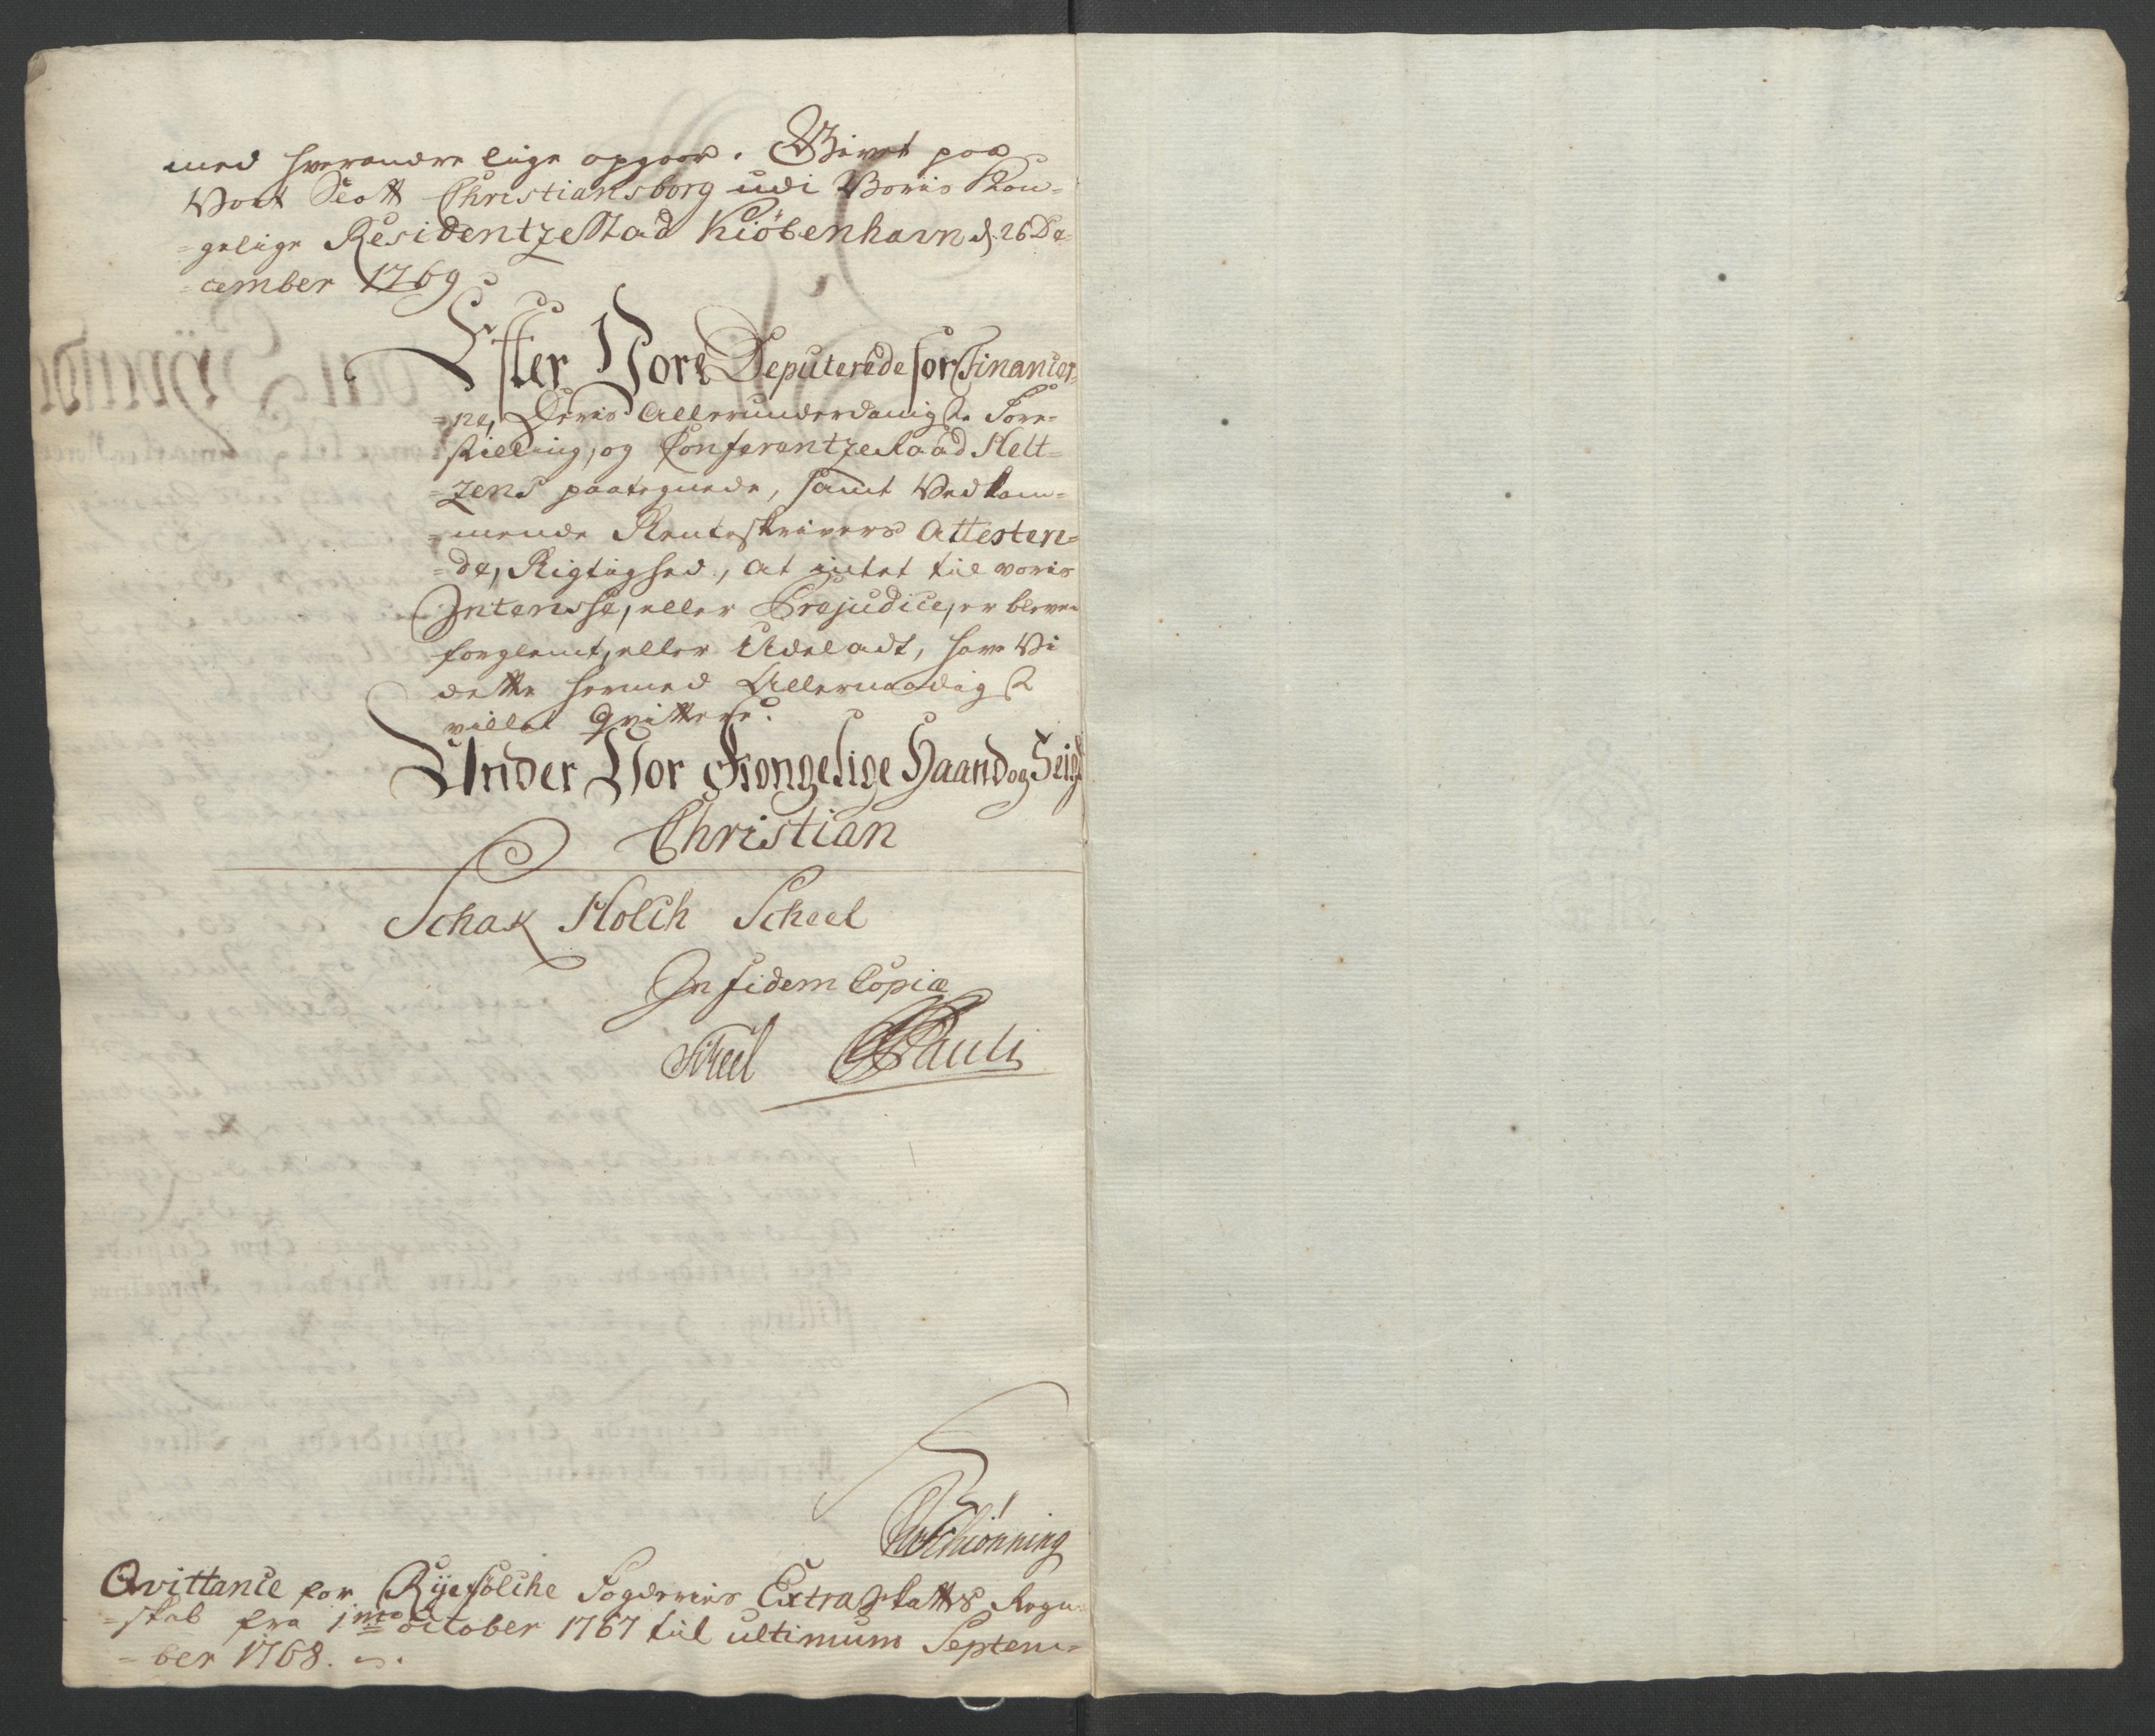 med hverandre liige opgaar. Givet paa
Vort Slott Christiansborg udi Voris Kon-
=gelige Residentze Stad Kiöbenhavn d. 26 De-
=cember 1769
Efter Vore Deputerede for Financer-
=ne, Deris Allerunderdanigste Fore-
stilling, og Conferentze Raad Helt-
=zens paategnede, samt Vedkom-
=mende Renteskrivers Atteste
=de, Rigtighed, at intet til voris
Interesse, eller Prejudice, er bleven
forglemt, eller Udeladt, have Vi
dette hermed Allernaadigst
villet Qvittere.
Under Vor Kongelige Haand og Seigl
Christian
Schak Holch Scheel
In fidem Copiæ
Scheel Pauli
Schiönning
Qvittance for Ryefölche Fogderies Extra Skattes Regn-
=skab fra 1mo October 1767 til ultimum Septem-
=ber 1768.